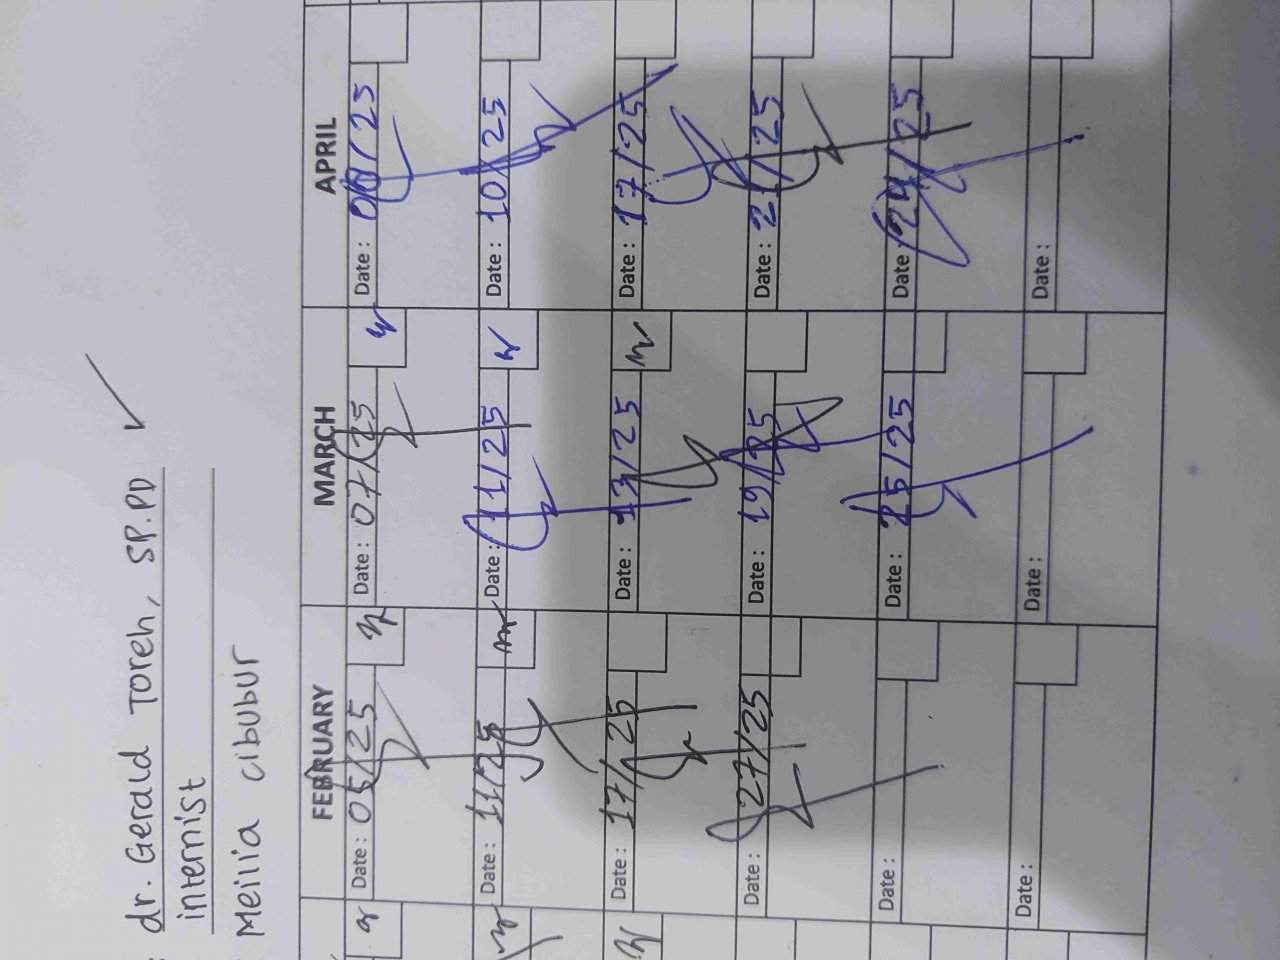 dr. Gerald Toreh, SP.PD
internist
Meilia cibubur
FEBRUARY MARCH APRIL
Date : 05/25 Date : 07/25 Date : /25
Date : 11/25 Date : 11/25 Date : 10/25
Date : 17/25 Date : 13/25 Date : 17/25
Date : 27/25 Date : 19/25 Date : 21/25
Date : Date : 25/25 Date : 24/25
Date : Date : Date :